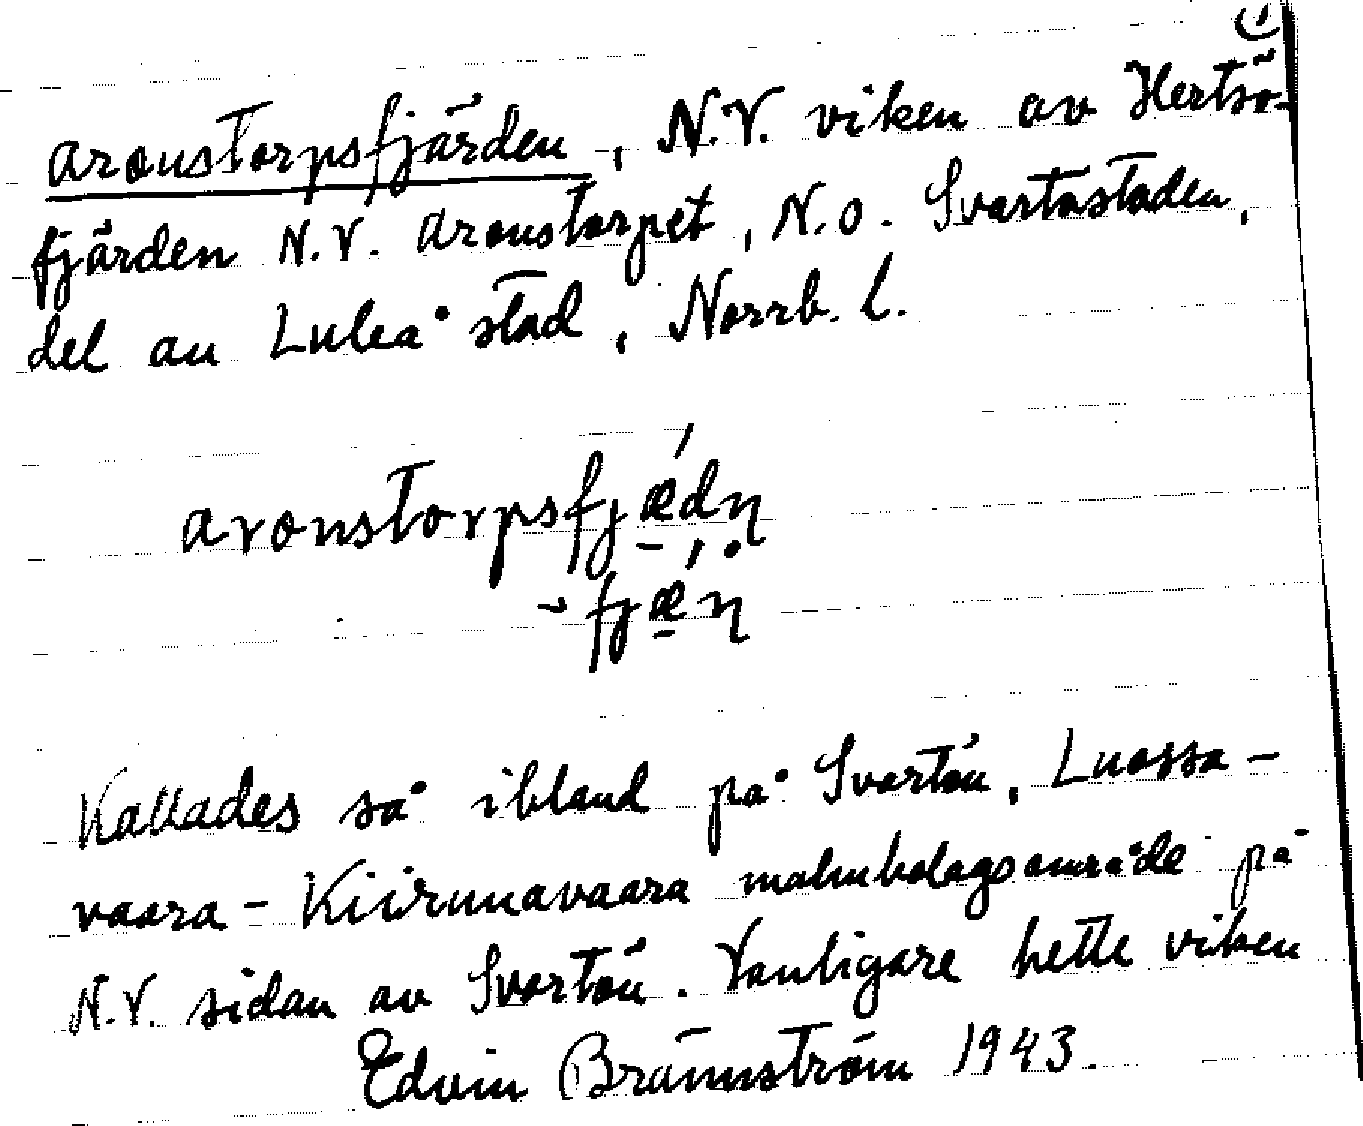 1)
Aronstorpsfjärden, N.V. viken av Hertsö-
fjärden N.V. Aronstorpet, N.O. Svartöstaden,
del av Luleå stad, Norrb. l.
aronstorpsfjǽdn̥
-fjǽn̥
Kallades så ibland på Svartön, Luossa-
vaara - Kiirunavaara malmbolagsområde på
N.V. sidan av Svartön. Vanligare hette viken
Edvin Brännström 1943.